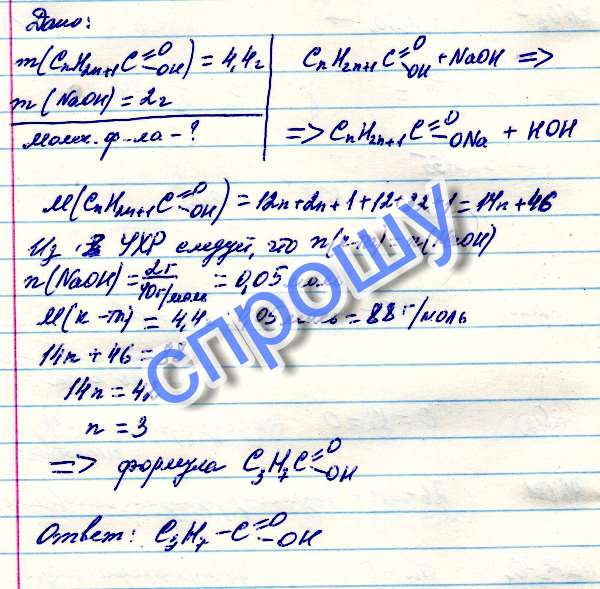 Дано:
m(CnH2n+1C=O-OH) = 4,4г
m(NaOH) = 2г
Молек. ф-ла - ?
CnH2n+1C=O-OH + NaOH =>
=> CnH2n+1C=O-ONa + HOH
M(CnH2n+1C=O-OH) = 12n+2n+1+12+32+1=14n+46
Из УХР следует, что n(к-ты)=n(NaOH)
n(NaOH) = 2г/40г/моль = 0,05 моль
M(к-ты) = 4,4 05 моль = 88 г/моль
14n + 46 =
14n = 4
n = 3
=> формула C3H7C=O-OH
Ответ: C3H7-C=O-OH
спрошу